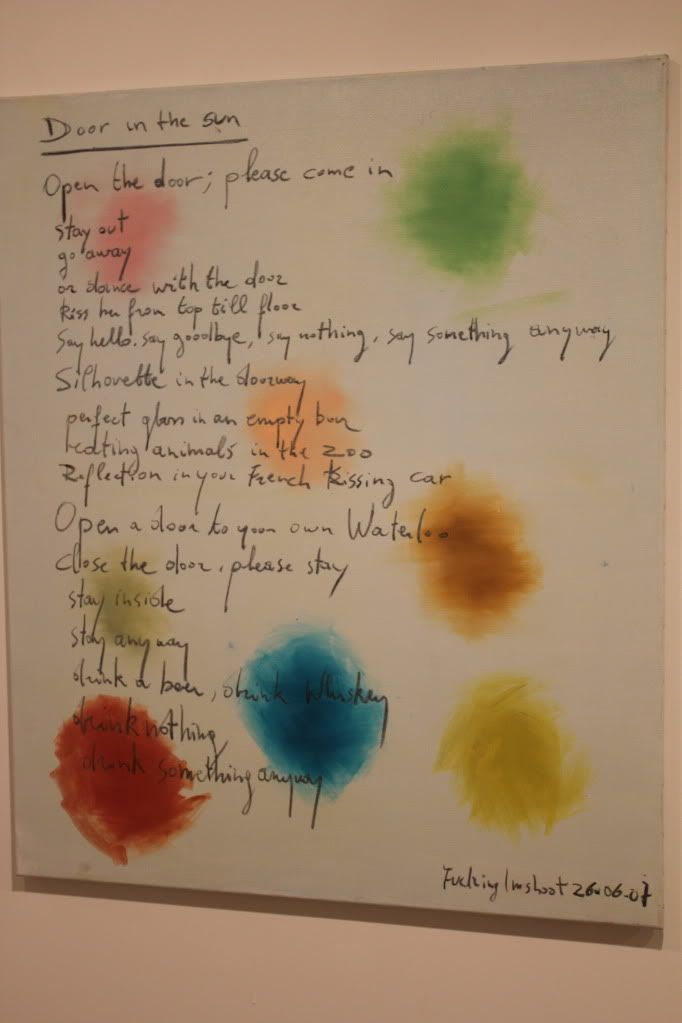 Door in the sun
Open the door; please come in
stay out
go away
or dance with the door
kiss her from top till floor
Say hello. say goodbye, say nothing, say something anyway
Silhouette in the doorway
perfect glass in an empty bar
eating animals in the zoo
Reflection in your French kissing car
Open a door to your own Waterloo
Close the door, please stay
stay inside
stay anyway
drink a beer, drink whiskey
drink nothing
drink something anyway
Fucking 26-06-07